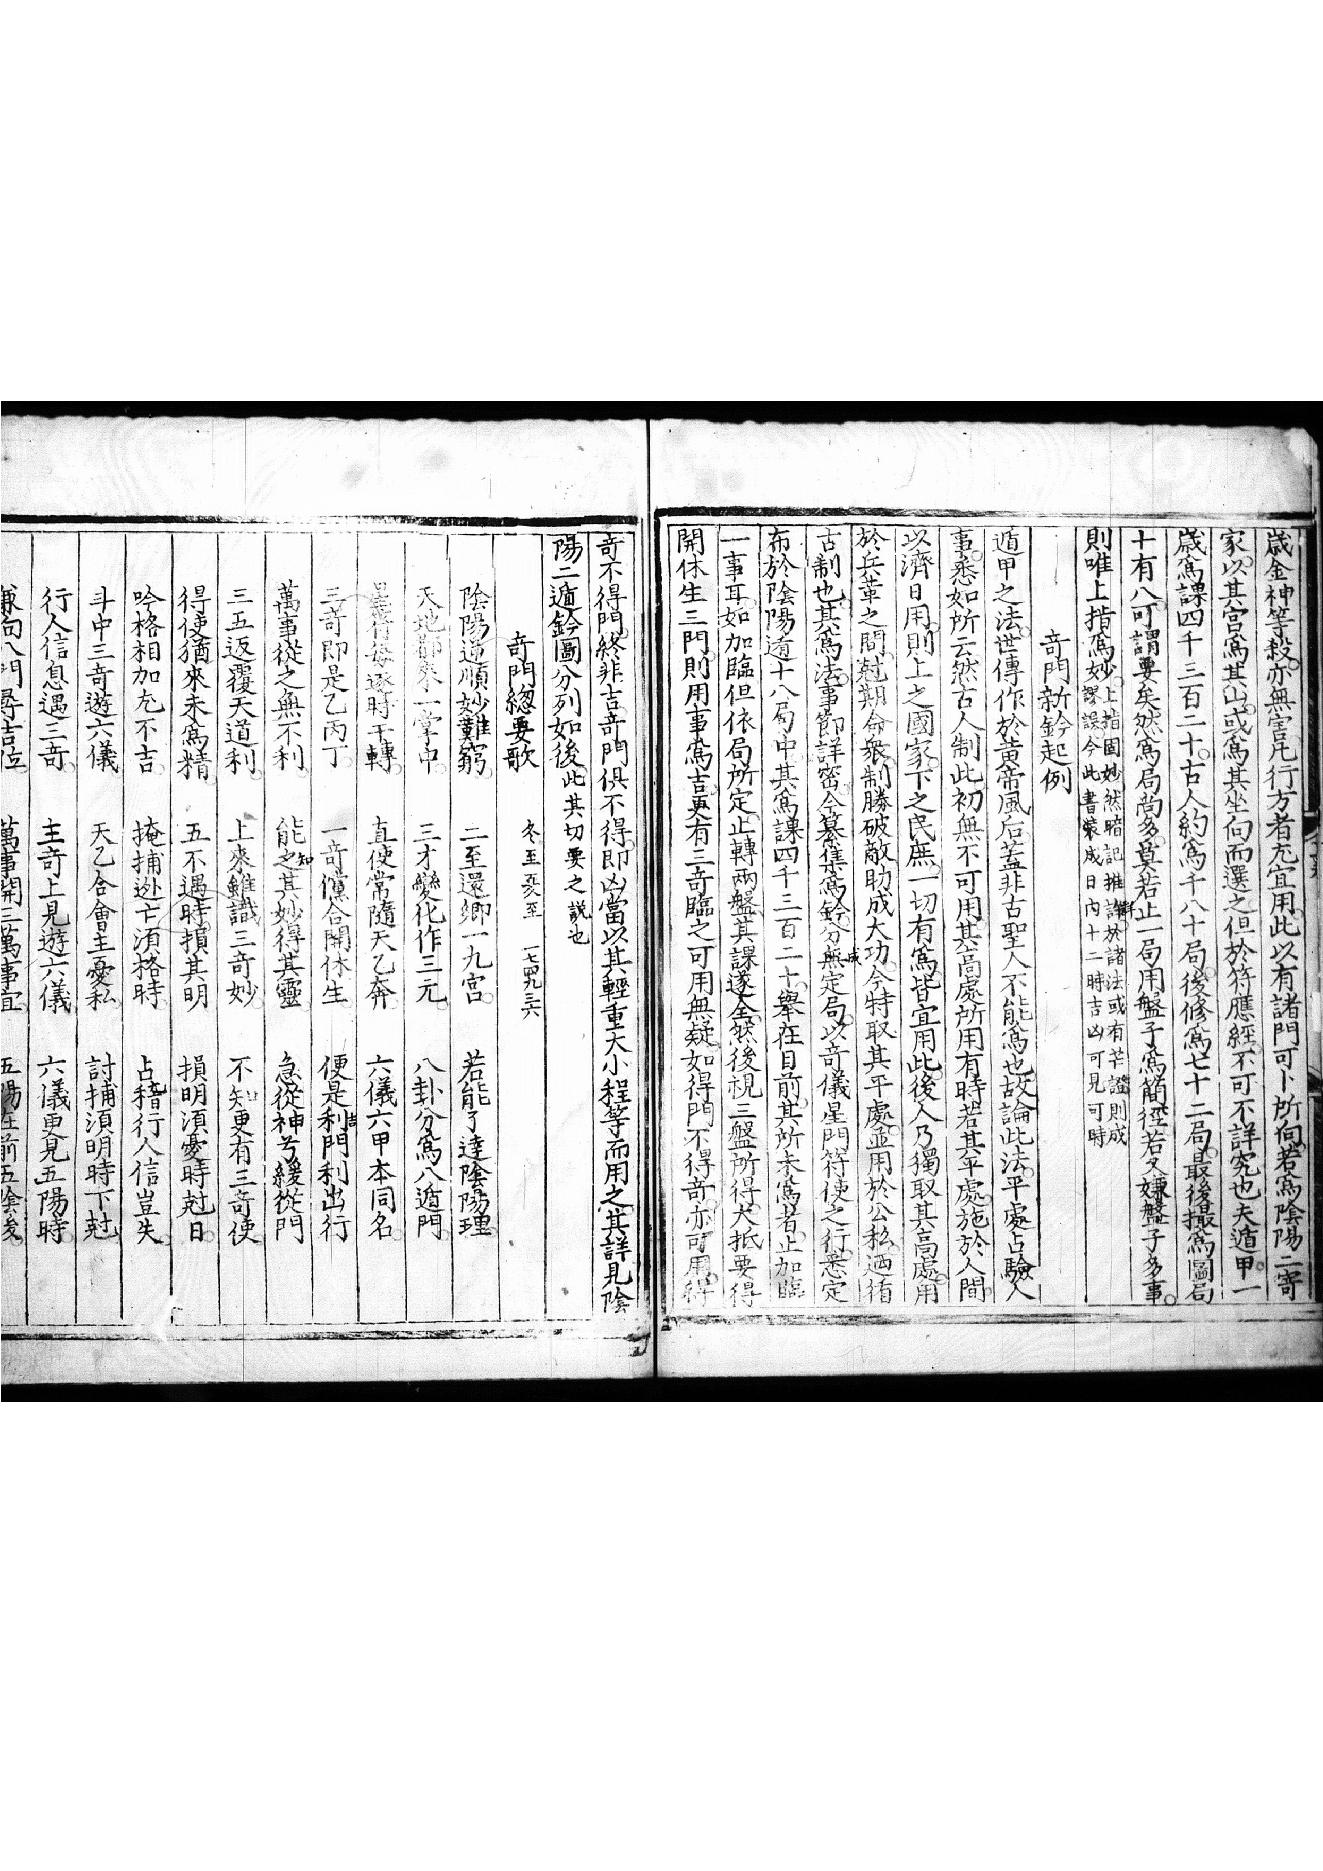 歲金神等殺亦無害凡行方者尤宜用此以有諸門可卜所向若爲陰陽二寄
家以其宮爲其山或爲其坐向而選之但於符應經不可不詳究也夫遁甲一
歲爲課四千三百二十古人約爲千八十局後修爲七十二局最後撮爲圖局
十有八可謂要矣然爲局尚多莫若止一局用盤子爲簡徑若又嫌盤子多事
則唯上指爲妙上指固妙然暗記推詳於諸法或有芒謐則成
謬誤今此書裝成日内十二時吉凶可見可時
奇門新鈐起例
遁甲之法世傳作於黃帝風后蓋非古聖人不能爲也故論此法平處占驗人
事悉如所云然古人制此初無不可用其高處所用有時若其平處施於人間
以濟日用則上之國家下之民庶一切有爲皆宜用此後人乃獨取其高處用
於兵革之間尅期命衆制勝破敵助成大功今特取其平處並用於公私迺循
古制也其爲法事節詳密今纂集爲鈐分無定局以奇儀星門符使之行悉定
布於陰陽遁十八局中其爲課四千三百二十舉在目前其所未爲者止加臨
一事耳如加臨但依局所定止轉兩盤其課遂全然後視三盤所得大抵要得
開休生三門則用事爲吉更有三奇臨之可用無疑如得門不得奇亦可用得
奇不得門終非吉奇門俱不得即凶當以其輕重大小程等而用之其詳見陰
陽二遁鈐圖分列如後此其切要之說也
奇門總要歌 冬至夏至
陰陽逆順妙難窮 二至還鄉一九宮 若能了達陰陽理
天地都來一掌中 三才變化作三元 八卦分爲八遁門
星符每逐時干轉 直使常隨天乙奔 六儀六甲本同名
三奇即是乙丙丁 一奇儻合開休生 便是利門利出行
萬事從之無不利 能知其妙得其靈 急從神兮緩從門
三五返覆天道利 上來雖識三奇妙 不知更有三奇使
得使猶來未爲精 五不遇時損其明 損明須憂時尅日
吟格相加尤不吉 掩捕逃亡須格時 占稽行人信豈失
斗中三奇遊六儀 天乙合會主憂私 討捕須明時下尅
行人信息遇三奇 主奇上見遊六儀 六儀更見五陽時
兼向八門尋吉位 萬事開三萬事宜 五陽在前五陰後